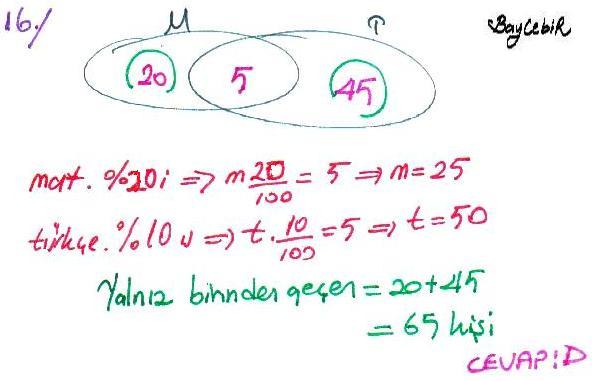 16./
M T BaycebiR
20 5 45
mat. %20i => m 20/100 = 5 => m = 25
türkçe. %10 u => t. 10/100 = 5 => t = 50
Yalnız birinden geçen = 20+45
= 65 kişi
CEVAP:D